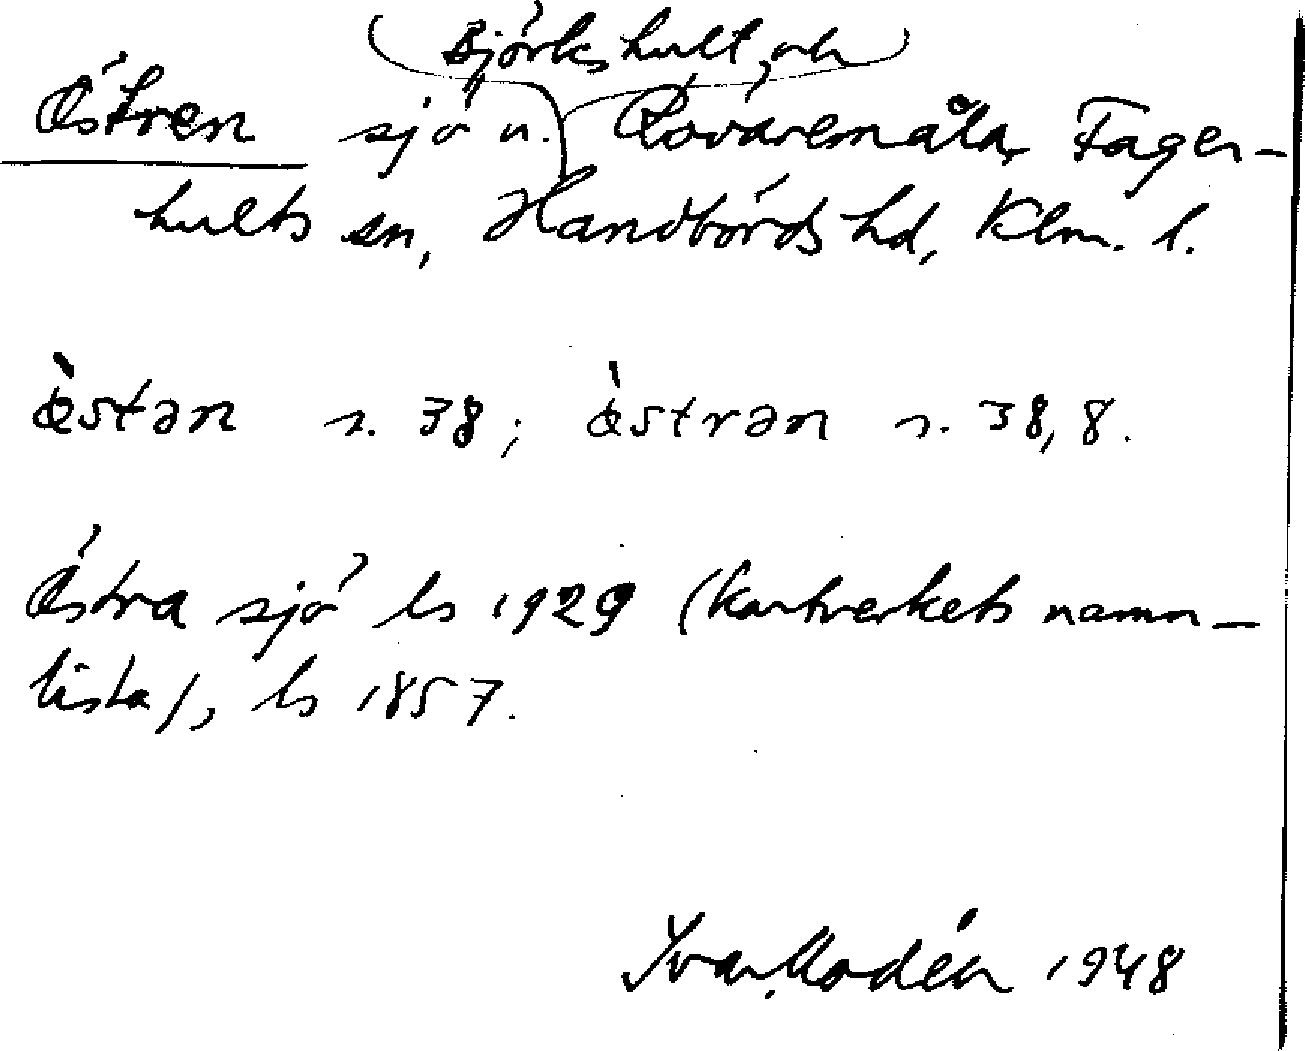 Björkshult och
Östren sjö u. Rövaremåla, Fager-
hults sn, Handbörds hd, Klm. l.
ö̀stən s. 38; ö̀strən s. 38, 8.
Östra sjö ls 1929 (kartverkets namn-
lista), ls 1857.
Ivar Modéer 1948